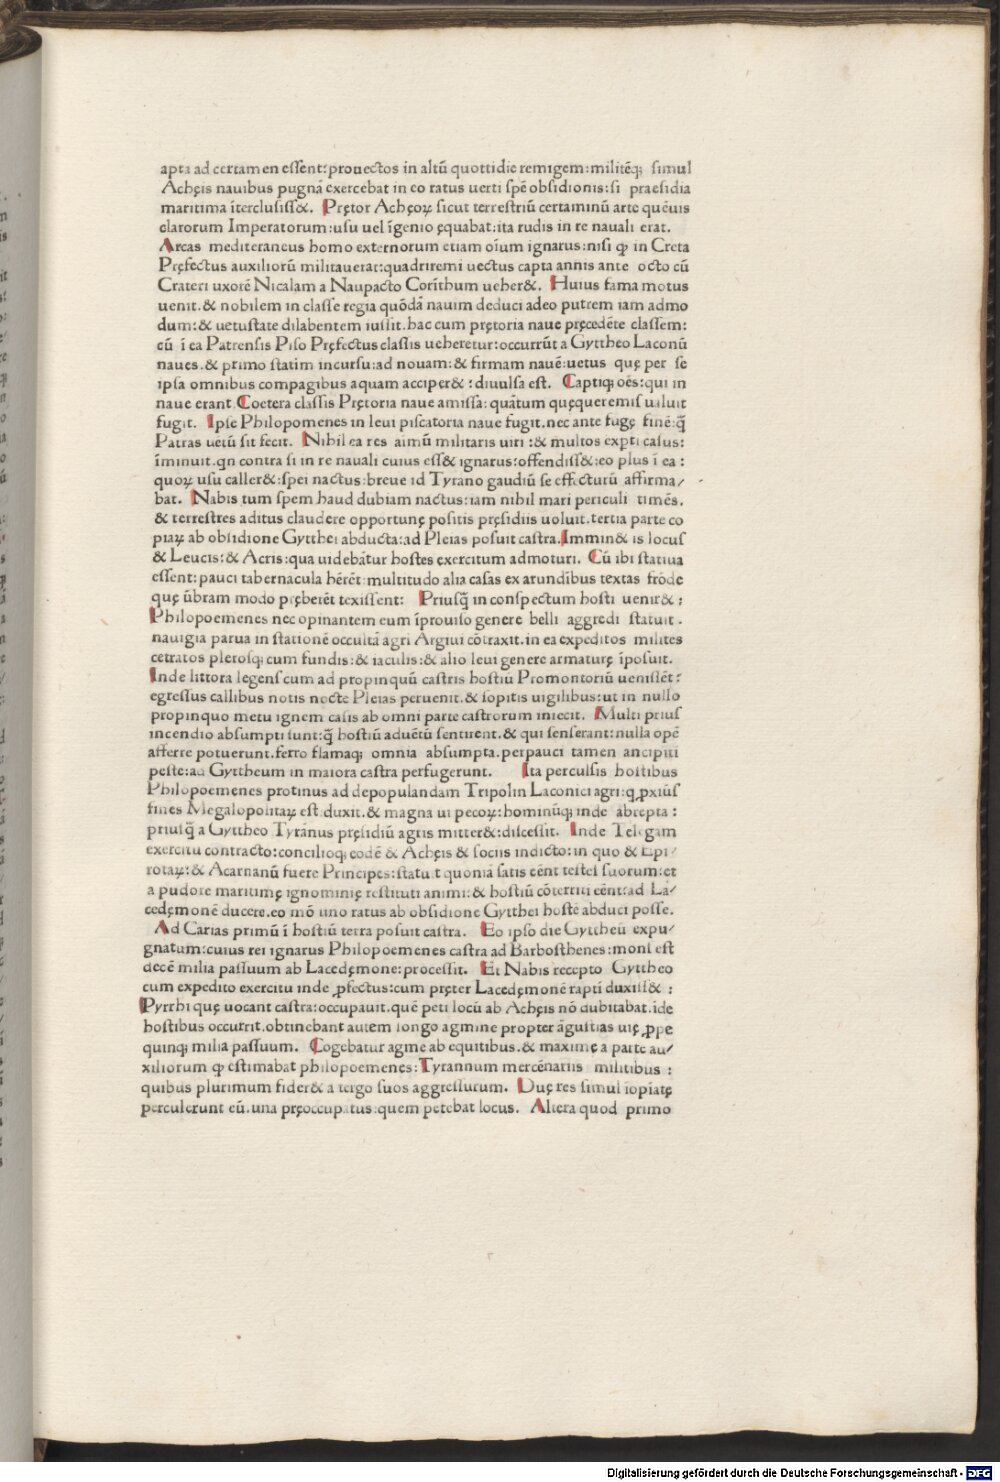 apta ad certamen essent: prouectos in altū quottidie remigem: militēq; simul
Achęis nauibus pugnā exercebat in eo ratus uerti spē obsidionis: si praesidia
maritima īterclusiss&. Prętor Achęoꝝ sicut terrestriū certaminū arte quēuis
clarorum Imperatorum: usu uel īgenio ęquabat: ita rudis in re nauali erat.
Arcas mediteraneus homo externorum etiam oīum ignarus: nisi ꝙ in Creta
Pręfectus auxiliorū militauerat: quadriremi uectus capta annis ante octo cū
Crateri uxorē Nicalam a Naupacto Corīthum ueher&. Huius fama motus
uenit. & nobilem in classe regia quōdā nauim deduci adeo putrem iam admo
dum: & uetustate dilabentem iussit. hac cum prętoria naue pręcedēte classem:
cū ī ea Patrensis Piso Pręfectus classis ueheretur: occurrūt a Gyttheo Laconū
naues. & primo statim incursu: ad nouam: & firmam nauē: uetus quę per se
ipsa omnibus compagibus aquam acciper&: diuulsa est. Captiq; oēs: qui in
naue erant. Coetera classis Prętoria naue amissa: quātum quęqueremis ualuit
fugit. Ipse Philopomenes in leui piscatoria naue fugit. nec ante fugę finē: q̄
Patras uētū sit fecit. Nihil ea res aimū militaris uiri: & multos expti casus:
īminuit. qn contra si in re nauali cuius ess& ignarus: offendiss&: eo plus ī ea:
quoꝝ usu caller&: spei nactus: breue id Tyrano gaudiū se effecturū affirma/
bat. Nabis tum spem haud dubiam nactus: iam nihil mari periculi timēs.
& terrestres aditus claudere opportunę positis pręsidiis uoluit. tertia parte co
piaꝝ ab obsidione Gytthei abducta: ad Pleias posuit castra. Immin& is locus
& Leucis: & Acris: qua uidebātur hostes exercitum admoturi. Cū ibi statiua
essent: pauci tabernacula hērēt: multitudo alia casas ex arundibus textas frōde
quę ūbram modo pręberēt texissent: Priusq̄ in conspectum hosti uenir&:
Philopoemenes nec opinantem eum īprouiso genere belli aggredi statuit.
nauigia parua in stationē occultā agri Argiui cōtraxit. in ea expeditos milites
cetratos plerosq; cum fundis: & iaculis: & alio leui genere armaturę īposuit.
Inde littora legens cum ad propinquū castris hostiū Promontoriū uenissēt:
egressus callibus notis nocte Pleias peruenit. & sopitis uigilibus: ut in nullo
propinquo metu ignem casis ab omni parte castrorum iniecit. Multi prius
incendio absumpti sunt: q̄ hostiū aduētū sentirent. & qui senserant: nulla opē
afferre potuerunt. ferro flamaq; omnia absumpta. perpauci tamen ancipiti
peste: ad Gyttheum in maiora castra perfugerunt. Ita perculsis hostibus
Philopoemenes protinus ad depopulandam Tripolin Laconici agri: q̄ ꝓxiūs
fines Megalopolitaꝝ est: duxit. & magna ui pecoꝝ: hominūq; inde abrepta:
priusq̄ a Gyttheo Tyrānus pręsidiū agris mitter&: discessit. Inde Telegam
exercitu contracto: concilioq; eodē & Achęis & sociis indicto: in quo & Epi/
rotaꝝ: & Acarnanū fuere Principes: statuit quoniā satis eēnt testes suorum: et
a pudore maritimę ignominię restituti animi: & hostiū cōterriti eēnt: ad La/
cedęmonē ducere. eo mō uno ratus ab obsidione Gytthei hostē abduci posse.
Ad Carias primū ī hostiū terra posuit castra. Eo ipso die Gyttheū expu/
gnatum: cuius rei ignarus Philopoemenes castra ad Barbosthenes: mons est
decē milia passuum ab Lacedęmone: processit. Et Nabis recepto Gyttheo
cum expedito exercitu inde ꝓfectus: cum pręter Lacedęmonē rapti duxiss&:
Pyrrhi quę uocant castra: occupauit. quē peti locū ab Achęis nō dubitabat. ide
hostibus occurrit. obtinebant autem longo agmine propter āgustias uię ꝓpe
quinq; milia passuum. Cogebatur agmē ab equitibus. & maximę a parte au/
xiliorum ꝙ estimabat philopoemenes: Tyrannum mercēnariis militibus:
quibus plurimum fider& a tergo suos aggressurum. Duę res simul īopīatę
perculerunt eū. una pręoccupatus: quem petebat locus. Altera quod primo
Digitalisierung gefördert durch die Deutsche Forschungsgemeinschaft - DFG